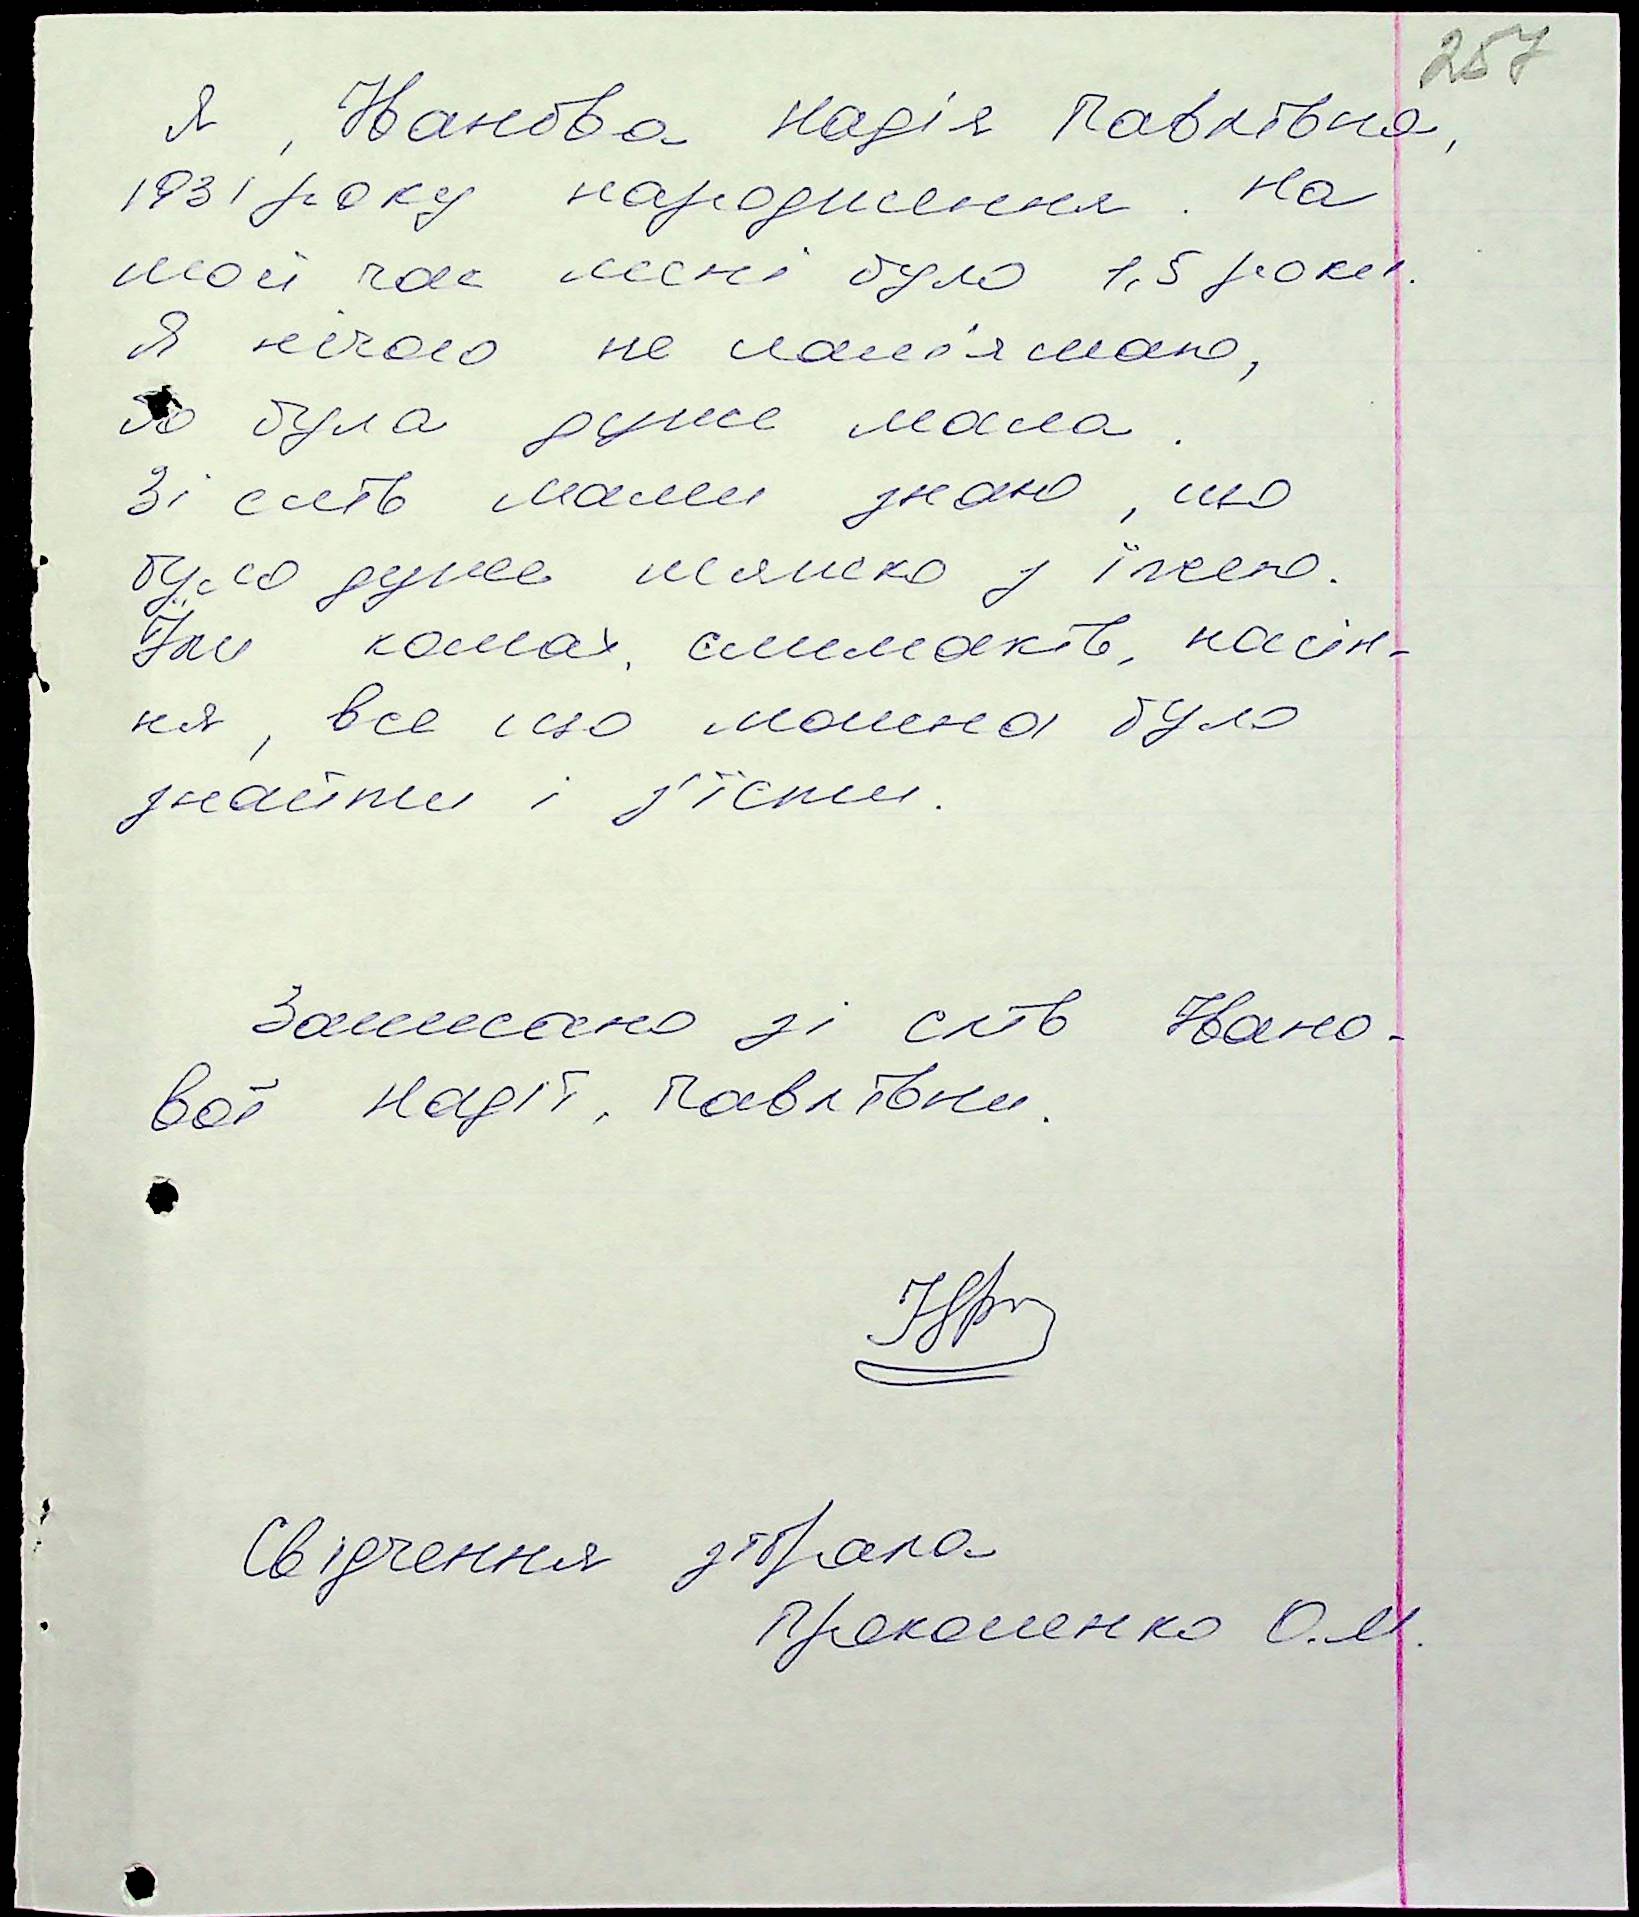 257
Я, Іванова Надія Павлівна,
1931 року народження. На
той час мені було 1,5 роки.
Я нічого не пам'ятаю,
бо була дуже мала.
Зі слів мами знаю, що
було дуже тяжко з їжею.
Їли комах, слимаків, насін-
ня, все що можна було
знайти і з'їсти.
Записано зі слів Івано-
вої Надії, Павлівни.
Свідчення зібрала
Прокопенко О.М.